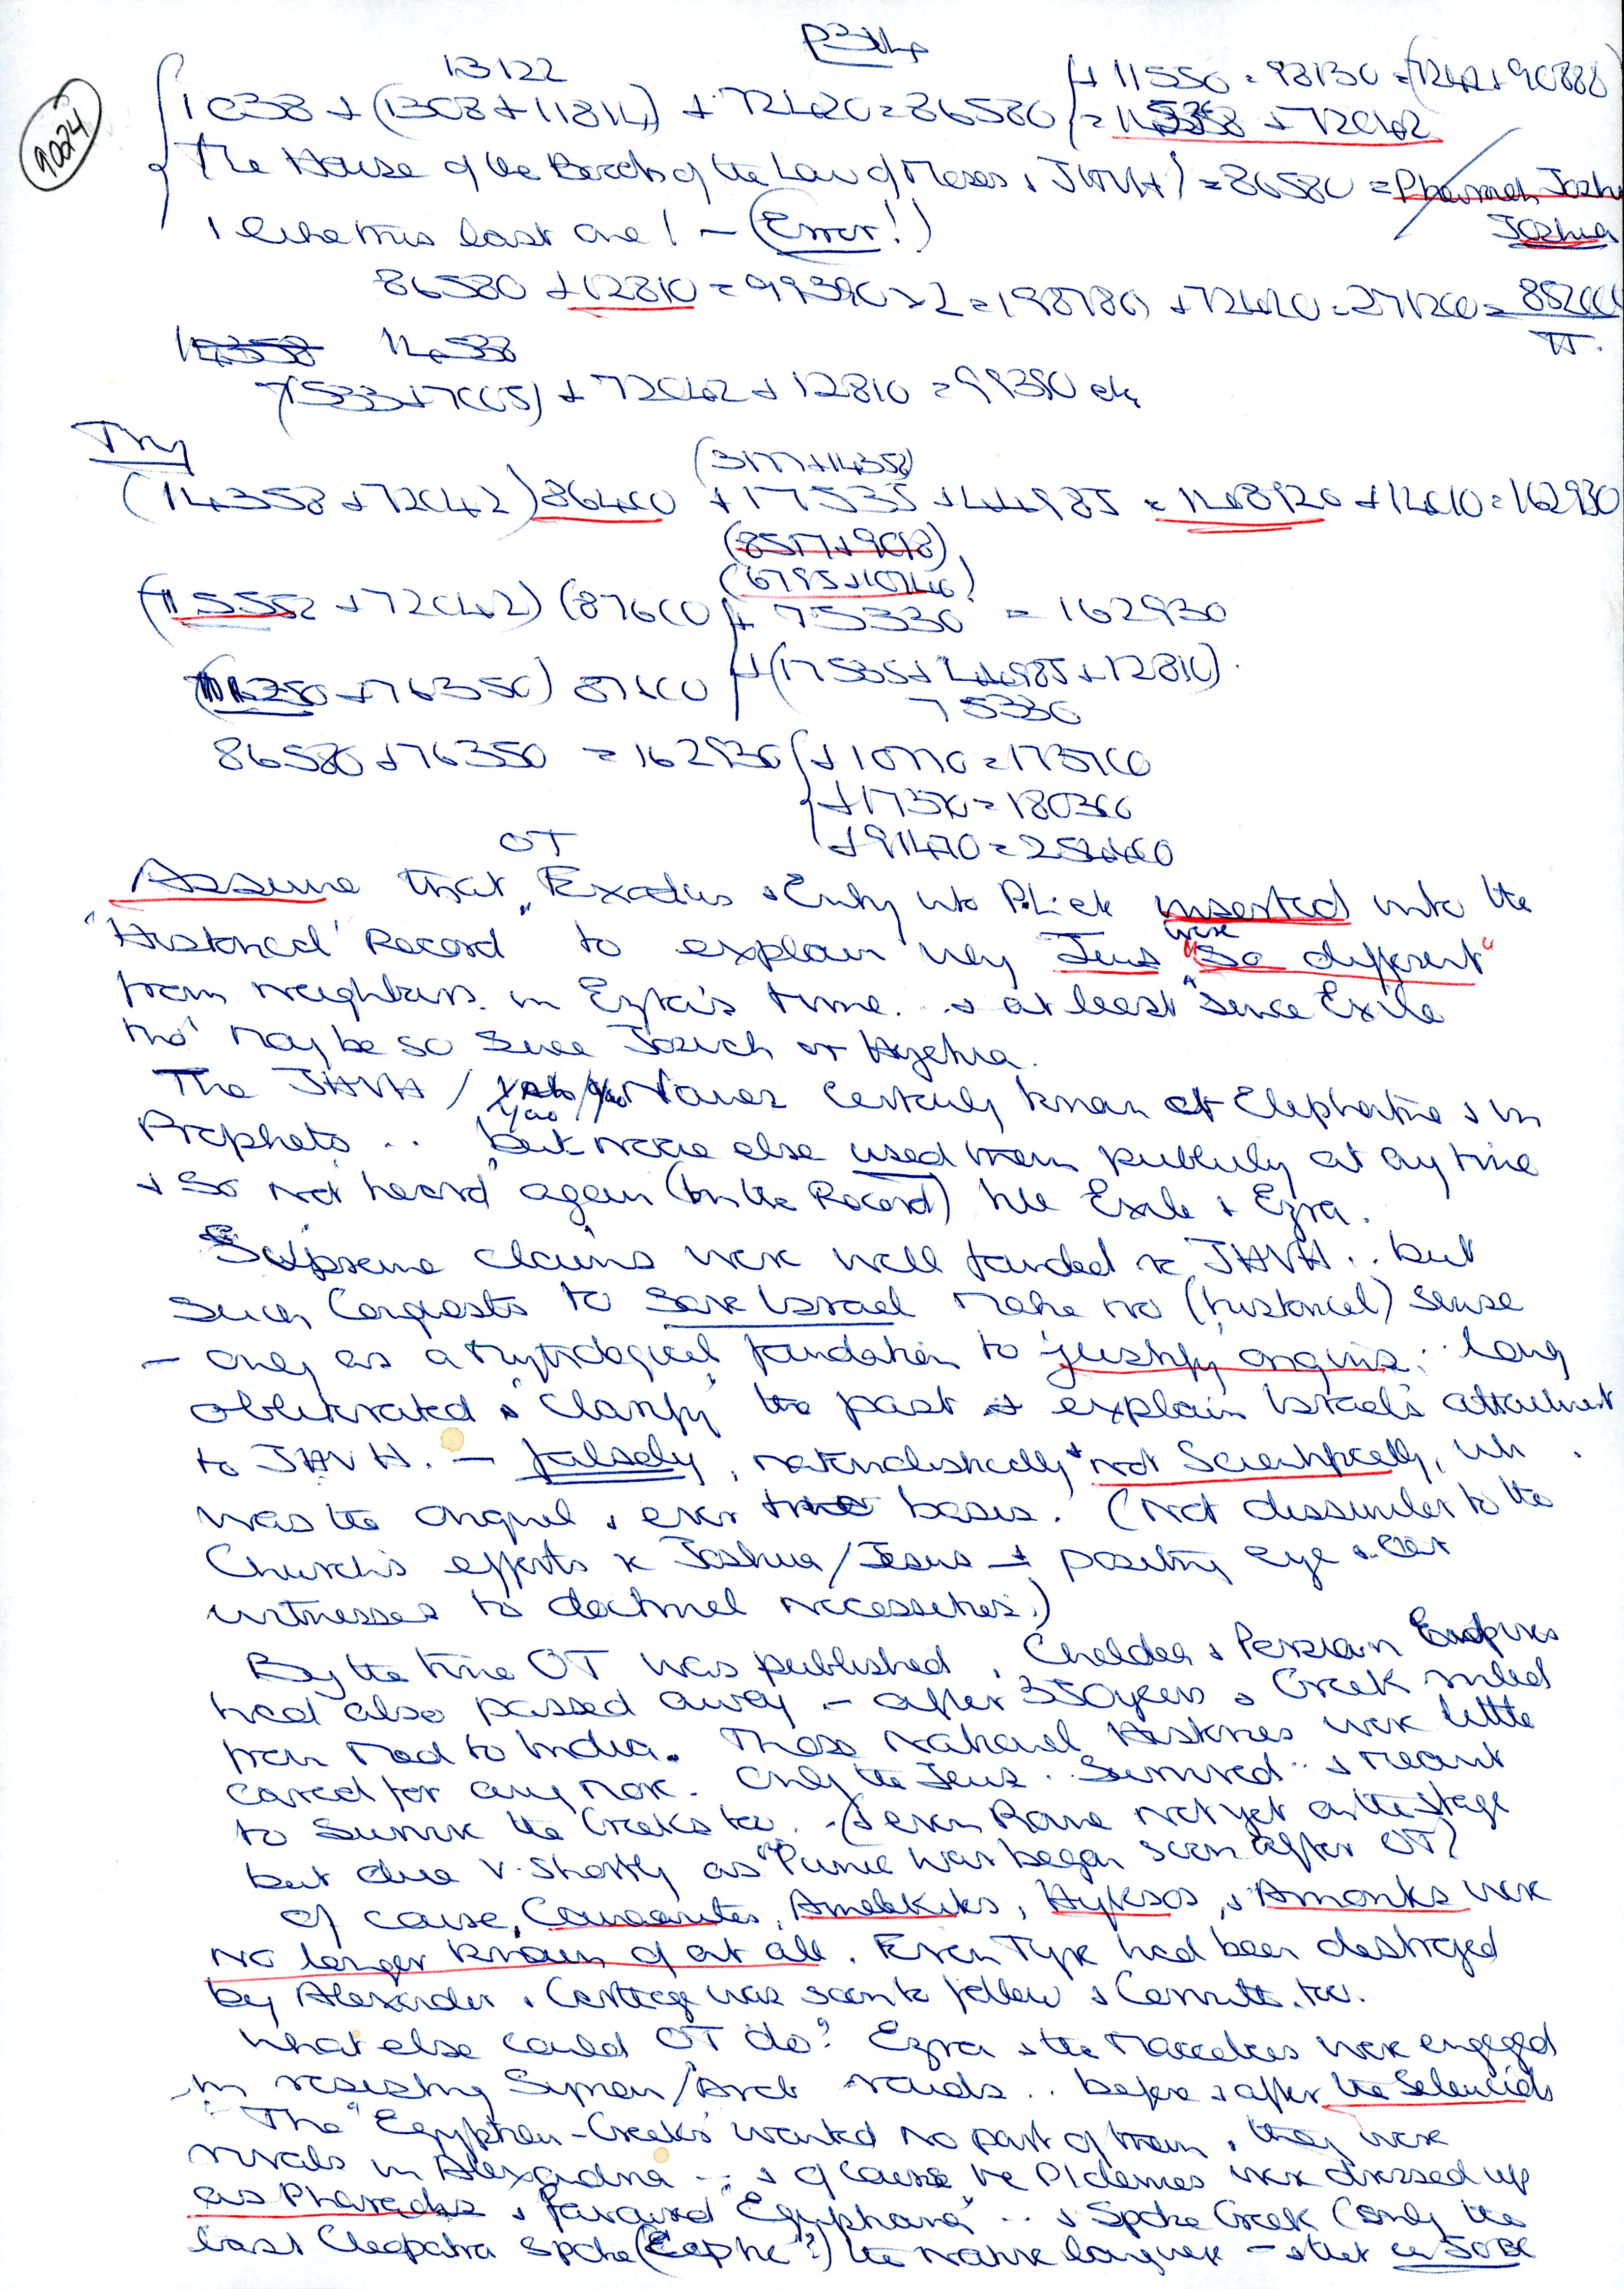 9024
13122
1038 + (1308 + 11814) + 72420 = 86580
+ 11550 = 98130 = 7242 + 90888
= 14538 + 72042
The House of the Books of the Law of Moses & JHVH = 86580 = Pharaoh Joshua
Joshua
I like this last one! - (Error!)
86580 + 12810 = 99390 x 2 = 198780 + 72420 = 271200 = 852000
π
14358 14538
(7533 + 7005) + 72042 + 12810 = 99390 etc
Try
(3177 + 14358)
(14358 + 72042) 86400 + 17535 + 44985 = 148920 + 14010 = 162930
(8517 + 9018)
(6795 + 10740)
(15552 + 72042) (87600 + 75330 = 162930
(11250 + 76350) 87600 + (17535 + 44985 + 12810)
75330
86580 + 76350 = 162930 + 10770 = 173700
+ 17370 = 180300
+ 91470 = 254400
OT
Assume that "Exodus & Entry into P.L. etc inserted into the
"Historical Record" to explain why Jews were "so different"
from neighbours in Ezra's time. & at least "since Exile
tho' may be so since Josiah or Hezekia.
The JHVH / Yao Names certainly known at Elephantine & in
Prophets .. but no one else used them publicly at any time
& so "not heard" again (in the Record) till Exile & Ezra.
Supreme claims were well founded re JHVH .. but
such Conquests to save Israel make no (historical) sense
- only as a mythological foundation to justify origins .. long
obliterated & 'clarify' the past & explain Israel's attachment
to JHVH. - falsely, naturalistically & not scientifically, wh
was the original & ever true basis. (Not dissimilar to the
Church's efforts re Joshua/Jesus - & positing eye & ear
witnesses to doctrinal necessities.)
By the time OT was published, Chaldea & Persian Empires
had also passed away - after 350 years & Greek ruled
from Med to India. Those National Histories were little
cared for any more. Only the Jews .. Survived .. & meant
to survive the Greeks too. - (& even Rome not yet on the stage
but due v. shortly as "Punic War began soon after OT)
Of course, Canaanites, Amalekites, Hyksos, & Amonites were
no longer known of at all. Even Tyre had been destroyed
by Alexander & Carthage was soon to follow & Corinth, too.
What else could OT do? Ezra & the Maccabees were engaged
in resisting Syrian/Arab raids .. before & after the Seleucids
The "Egyptian-Greeks" wanted no part of them, they were
rivals in Alexandria -- & of course the Ptolemies were dressed up
as Pharaohs & favoured "Egyptians" .. & spoke Greek (only the
last Cleopatra spoke (Coptic"?) the native language - & that ca 50BC